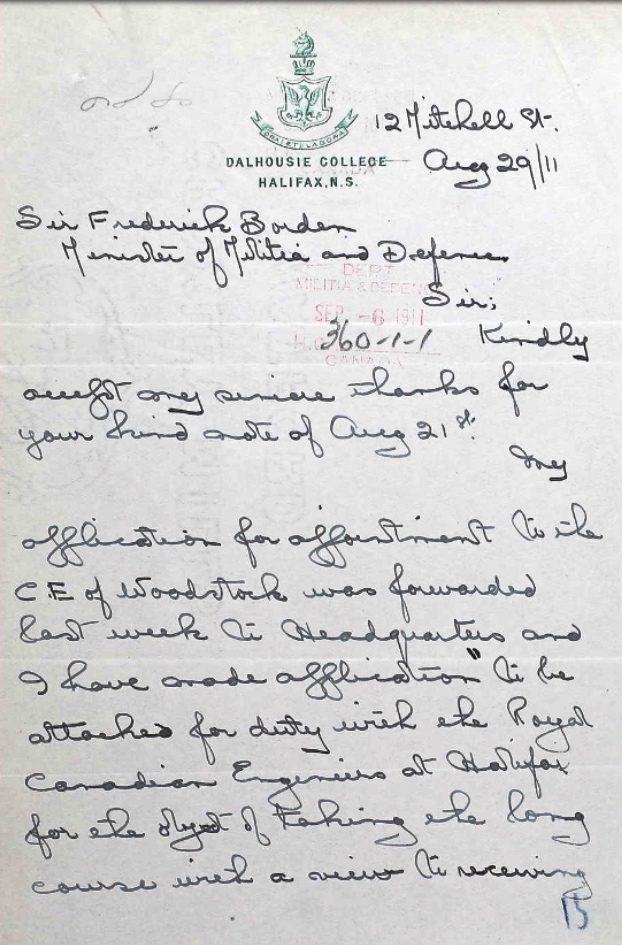 ORA ET LABORA
12 Mitchell St.
DALHOUSIE COLLEGE
Aug 29/11
HALIFAX, N.S.
Sir Frederick Borden
Minister of Militia and Defence
DEPT
MILITIA & DEFENCE
Sir;
SEP -6 1911
H.Q. 360-1-1 Kindly
CANADA
accept my sincere thanks for
your kind note of Aug 21st.
My
application for appointment to the
C.E of Woodstock was forwarded
last week to Headquarters and
I have made application " to be
attached for duty with the Royal
Canadian Engineers at Halifax
for the object of taking the long
course with a view to receiving
15